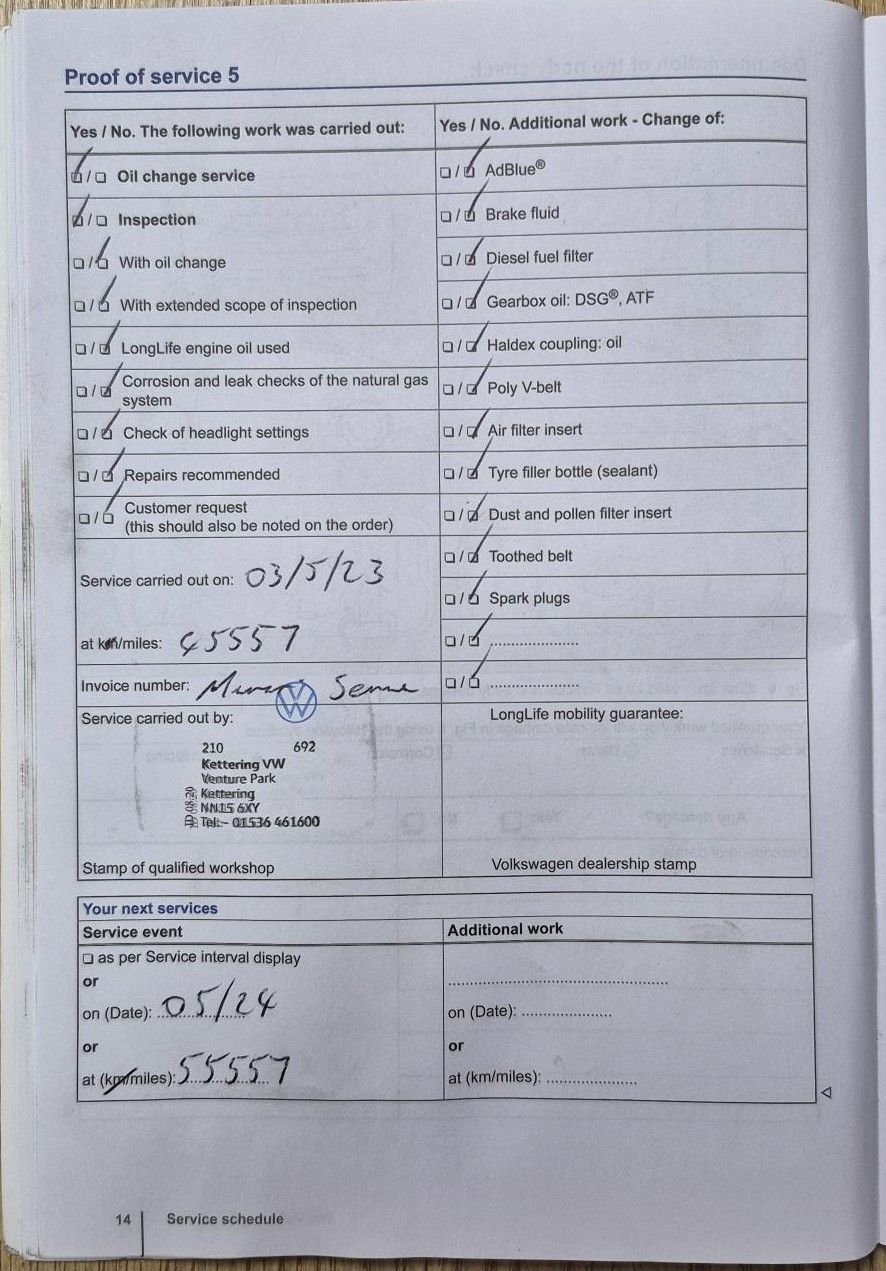 Proof of service 5
Yes / No. The following work was carried out:
☑ / ☐ Oil change service
☑ / ☐ Inspection
☐ / ☑ With oil change
☐ / ☑ With extended scope of inspection
☐ / ☑ LongLife engine oil used
☐ / ☑ Corrosion and leak checks of the natural gas
system
☐ / ☑ Check of headlight settings
☐ / ☑ Repairs recommended
☐ / ☑ Customer request
(this should also be noted on the order)
Service carried out on: 03/5/23
at km/miles: 45557
Invoice number:
Service carried out by:
210 692
Kettering VW
Venture Park
Kettering
NN15 6XY
Tel:- 01536 461600
Stamp of qualified workshop
Yes / No. Additional work - Change of:
☐ / ☑ AdBlue®
☐ / ☑ Brake fluid
☐ / ☑ Diesel fuel filter
☐ / ☑ Gearbox oil: DSG®, ATF
☐ / ☑ Haldex coupling: oil
☐ / ☑ Poly V-belt
☐ / ☑ Air filter insert
☐ / ☑ Tyre filler bottle (sealant)
☐ / ☑ Dust and pollen filter insert
☐ / ☑ Toothed belt
☐ / ☑ Spark plugs
☐ / ☑ ....................
☐ / ☑ ....................
LongLife mobility guarantee:
Volkswagen dealership stamp
Your next services
Service event
☐ as per Service interval display
or
on (Date): 05/24
or
at (km/miles): 55557
Additional work
..................................................
on (Date): ....................
or
at (km/miles): ....................
14 Service schedule